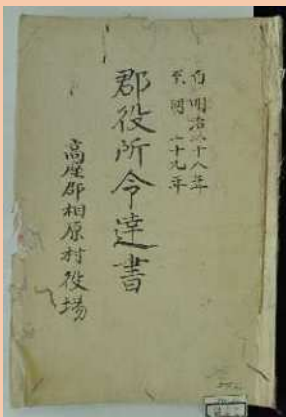 自明治三十八年
至同三十九年
郡役所令達書
高座郡相原村役場